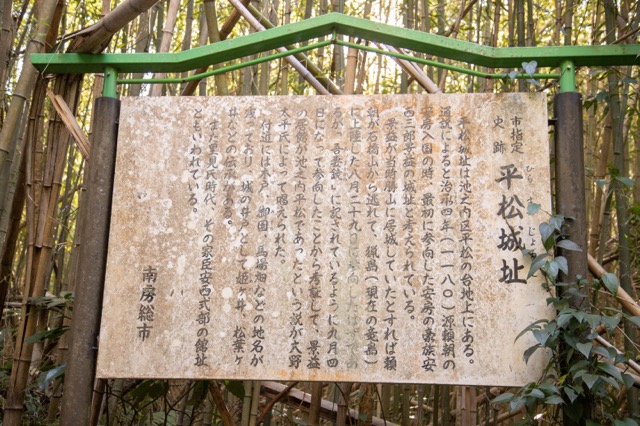 市指定
史跡
平松城址
平松城址は池之内区平松の台地上にある。
通説によると治承四年(一一八〇)源頼朝の
安房入国の時、最初に参向した安房の豪族安
西三郎景益の城址と考えられている。
景益が当時勝山に居城していたとすれば頼
朝が石橋山から逃れて、猟島(現在の竜島)
に上陸した八月二十九日に参向した
るが「吾妻鏡」に記されているように九月四
日になって参向したことから考証して、景益
の居館が池之内平松であったという説が大野
太平氏によって唱えられた。
付近には木戸、御園、馬場畑などの地名が
残っており、城の井戸として姫ヶ井、松葉ヶ
井などの伝承がある。
また里見氏時代、その家臣安西式部の館址
ともいわれている。
南房総市